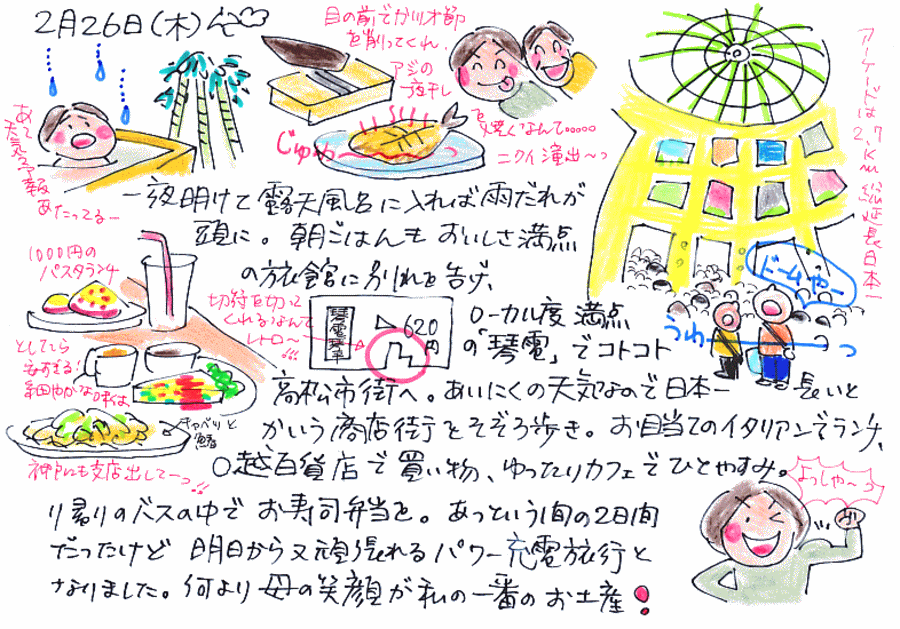 2月26日(木)
目の前でカツオ節
を削ってくれ、
アジの
一夜干し
を焼くなんて……
ニクイ演出〜っ
じゅわ〜っ
天気予報
あたってるー
アーケードは2.7Km 総延長日本一
一夜明けて露天風呂に入れば雨だれが
頭に。朝ごはんもおいしさ満点
の旅館に別れを告げ、
ドームやー
うわーっ
1000円の
パスタランチ
切符を切って
くれるなんて
レトロ〜!!!
620
円
ローカル度満点
の「琴電」でコトコト
としてたら
細やかな味は、
高松市街へ。あいにくの天気なので日本一長いと
かいう商店街をそぞろ歩き。お目当てのイタリアンでランチ、
キャベツと
神戸にも支店出してーっ!!
〇越百貨店で買い物、ゆったりカフェでひとやすみ。
よっしゃ〜っ
り帰りのバスの中でお寿司弁当を。あっという間の2日間
だったけど明日から又頑張れるパワー充電旅行と
なりました。何より母の笑顔が私の一番のお土産!